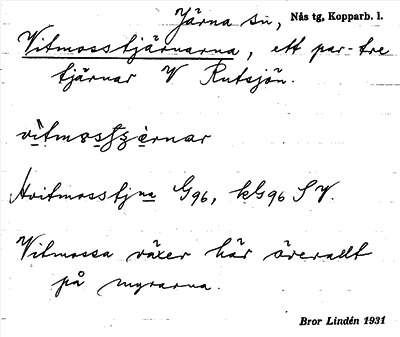 Järna sn, Nås tg, Kopparb. l.
Vitmosstjärnarna, ett par-tre
tjärnar V Rutsjön.
vìtmosstjärnar
Hvitmosstjna G96, kG96 SV.
Vitmossa växer här överallt
på myrarna.
Bror Lindén 1931